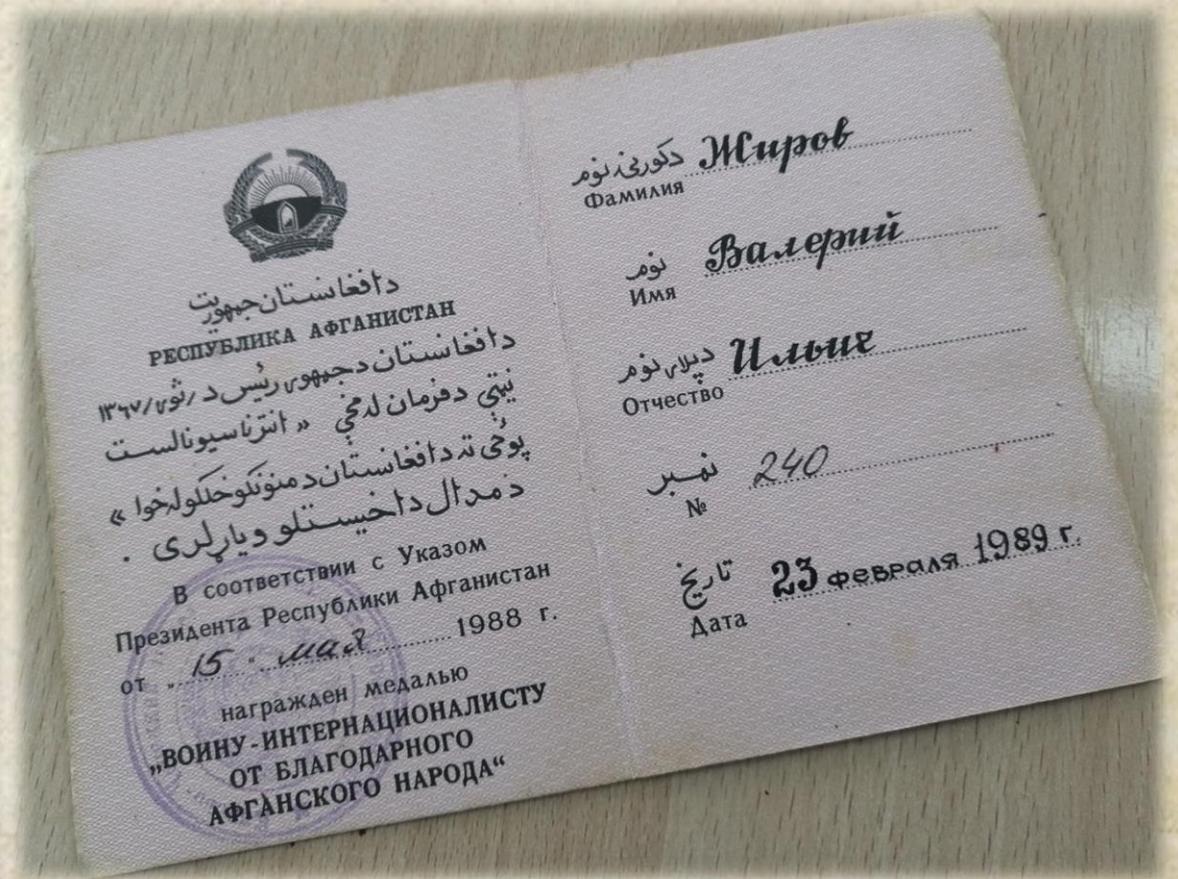 د افغانستان جمهوریت
РЕСПУБЛИКА АФГАНИСТАН
د افغانستان د جمهوری رئیس د / ثور / ۱۳۶۷
نیټې د فرمان له مخې « انترناسیونالست
پوځی ته د افغانستان د منونکو خلکو له خوا »
د مدال د اخیستلو ویاړ لری .
В соответствии с Указом
Президента Республики Афганистан
от „ 15 “ мая 1988 г.
награжден медалью
„ВОИНУ-ИНТЕРНАЦИОНАЛИСТУ
ОТ БЛАГОДАРНОГО
АФГАНСКОГО НАРОДА“
د کورنۍ نوم Жиров
Фамилия
نوم Валерий
Имя
د پلار نوم Ильич
Отчество
نمبر 240
№
تاریخ 23 февраля 1989 г.
Дата